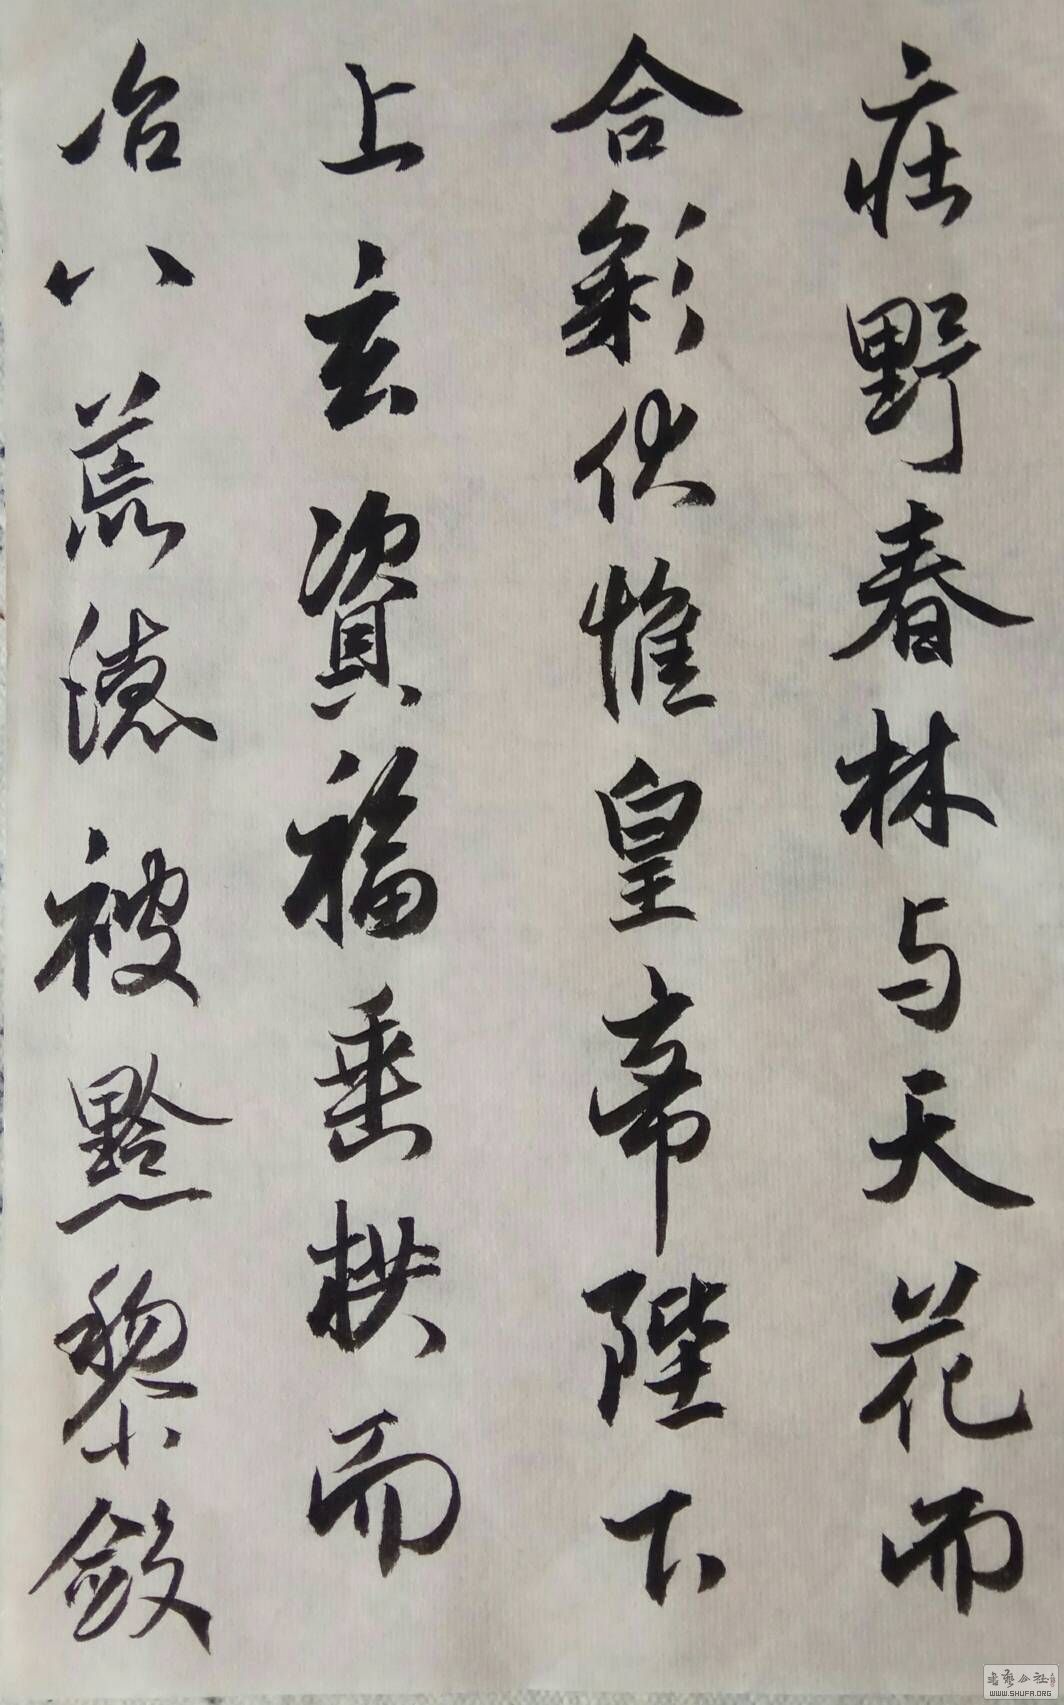 庄野春林与天花而
合彩伏惟皇帝陛下
上玄資福垂拱而
治八荒德被黔黎斂
WWW.SHUFA.ORG